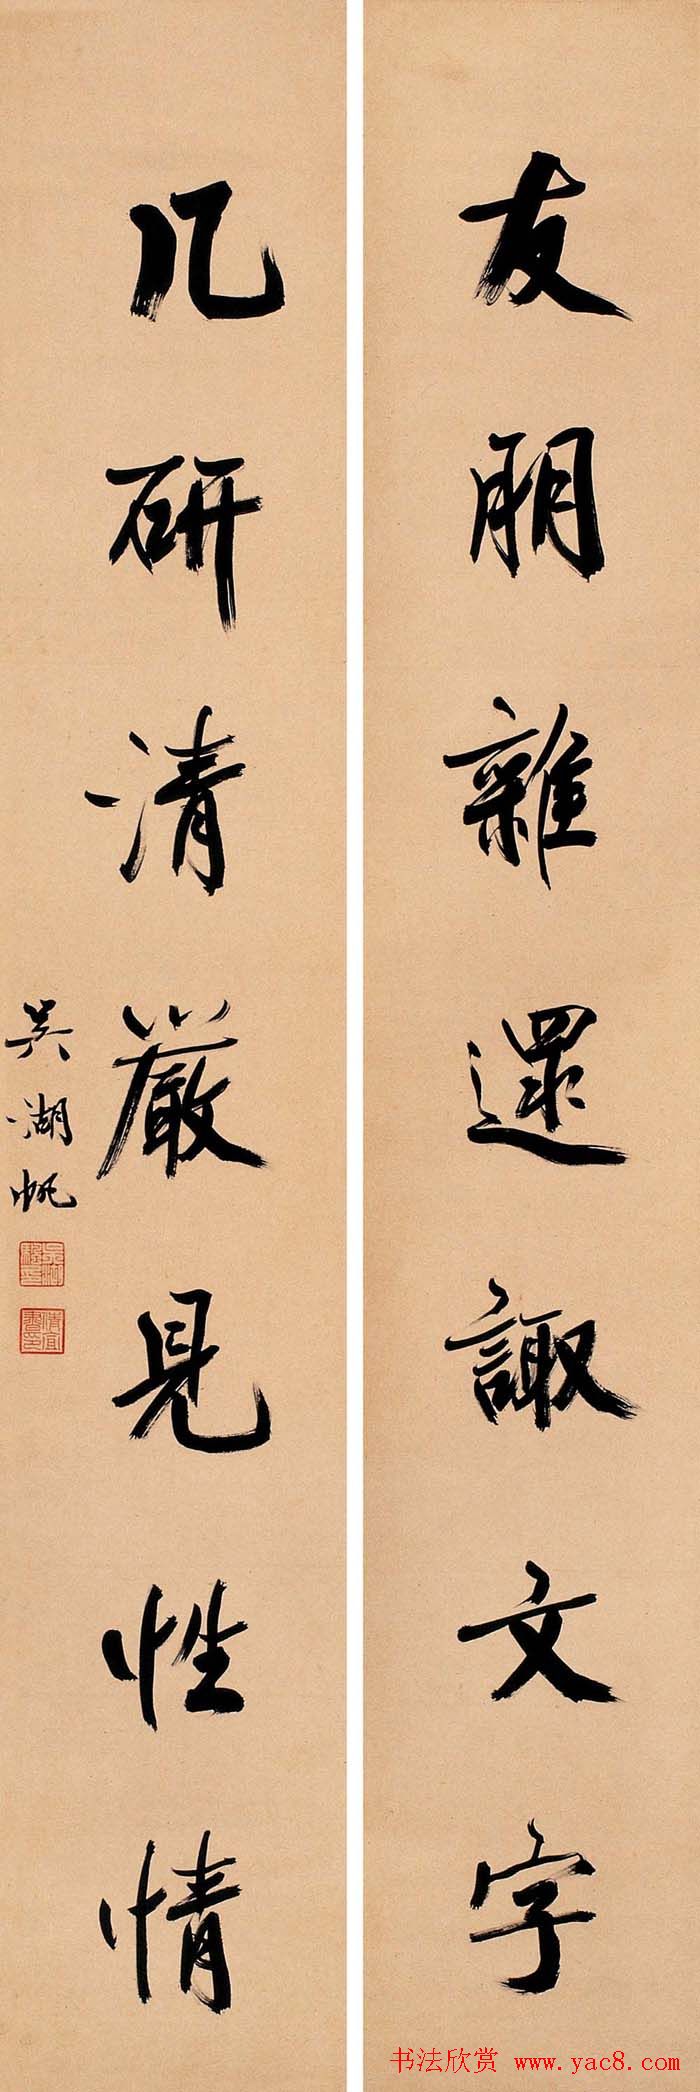 友朋雜遝諏文字
几研清嚴見性情
吴湖帆
书法欣赏 www.yac8.com